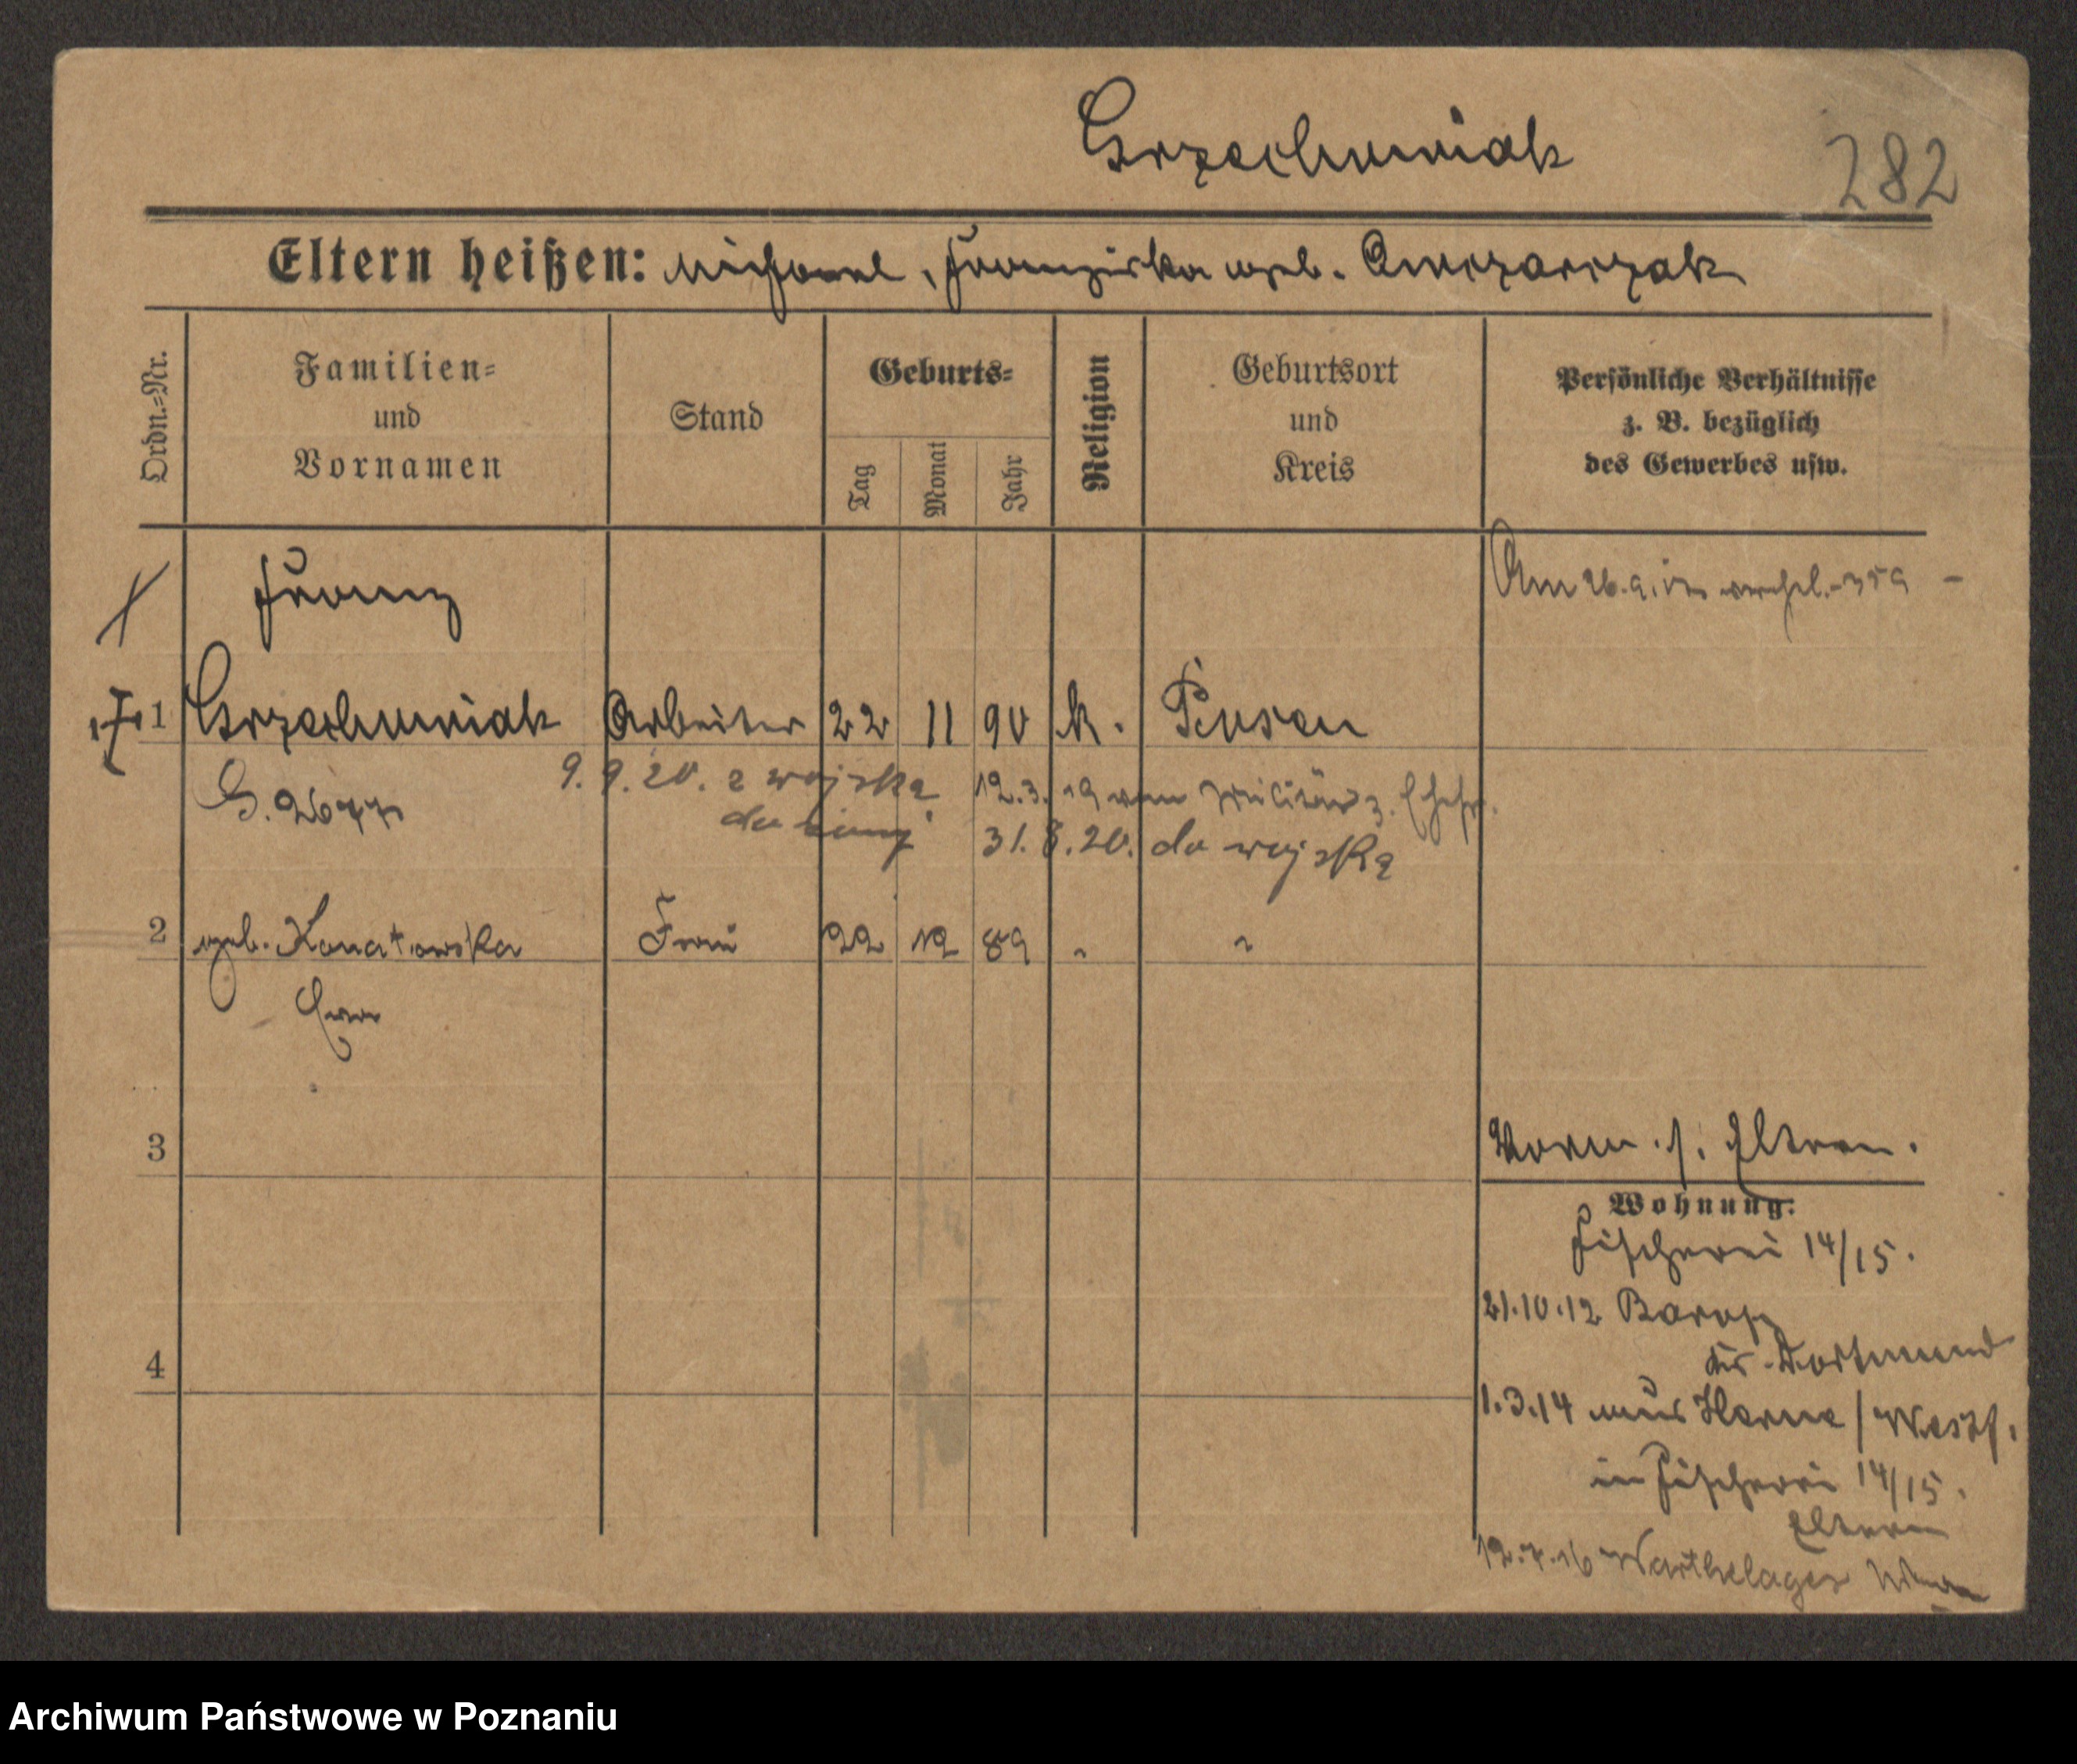 Grzechowiak
282
Eltern heißen: Michael, Franziska geb. Owczarczak
Ordn.=Nr.
Familien=
und
Vornamen
Stand
Geburts=
Tag
Monat
Jahr
Religion
Geburtsort
und
Kreis
Persönliche Verhältnisse
z. B. bezüglich
des Gewerbes usw.
Franz
Am 26.9.
1 Grzechowiak Arbeiter 22 11 90 k. Posen
G. 2677
9.9.20. z wojska
do żony
12.3.19 vom Militär z. Ehefr.
31.8.20. do wojska
2 geb. Konatowska Frau 22 12 89 " "
Eva
3
Vorm. s. Eltern.
Wohnung:
Fischerei 14/15.
21.10.12 Barop
Kr. Dortmund
4
1.3.14 aus Herne / Westf.
in Fischerei 14/15.
Eltern
12.7.16 Warthelager
Archiwum Państwowe w Poznaniu